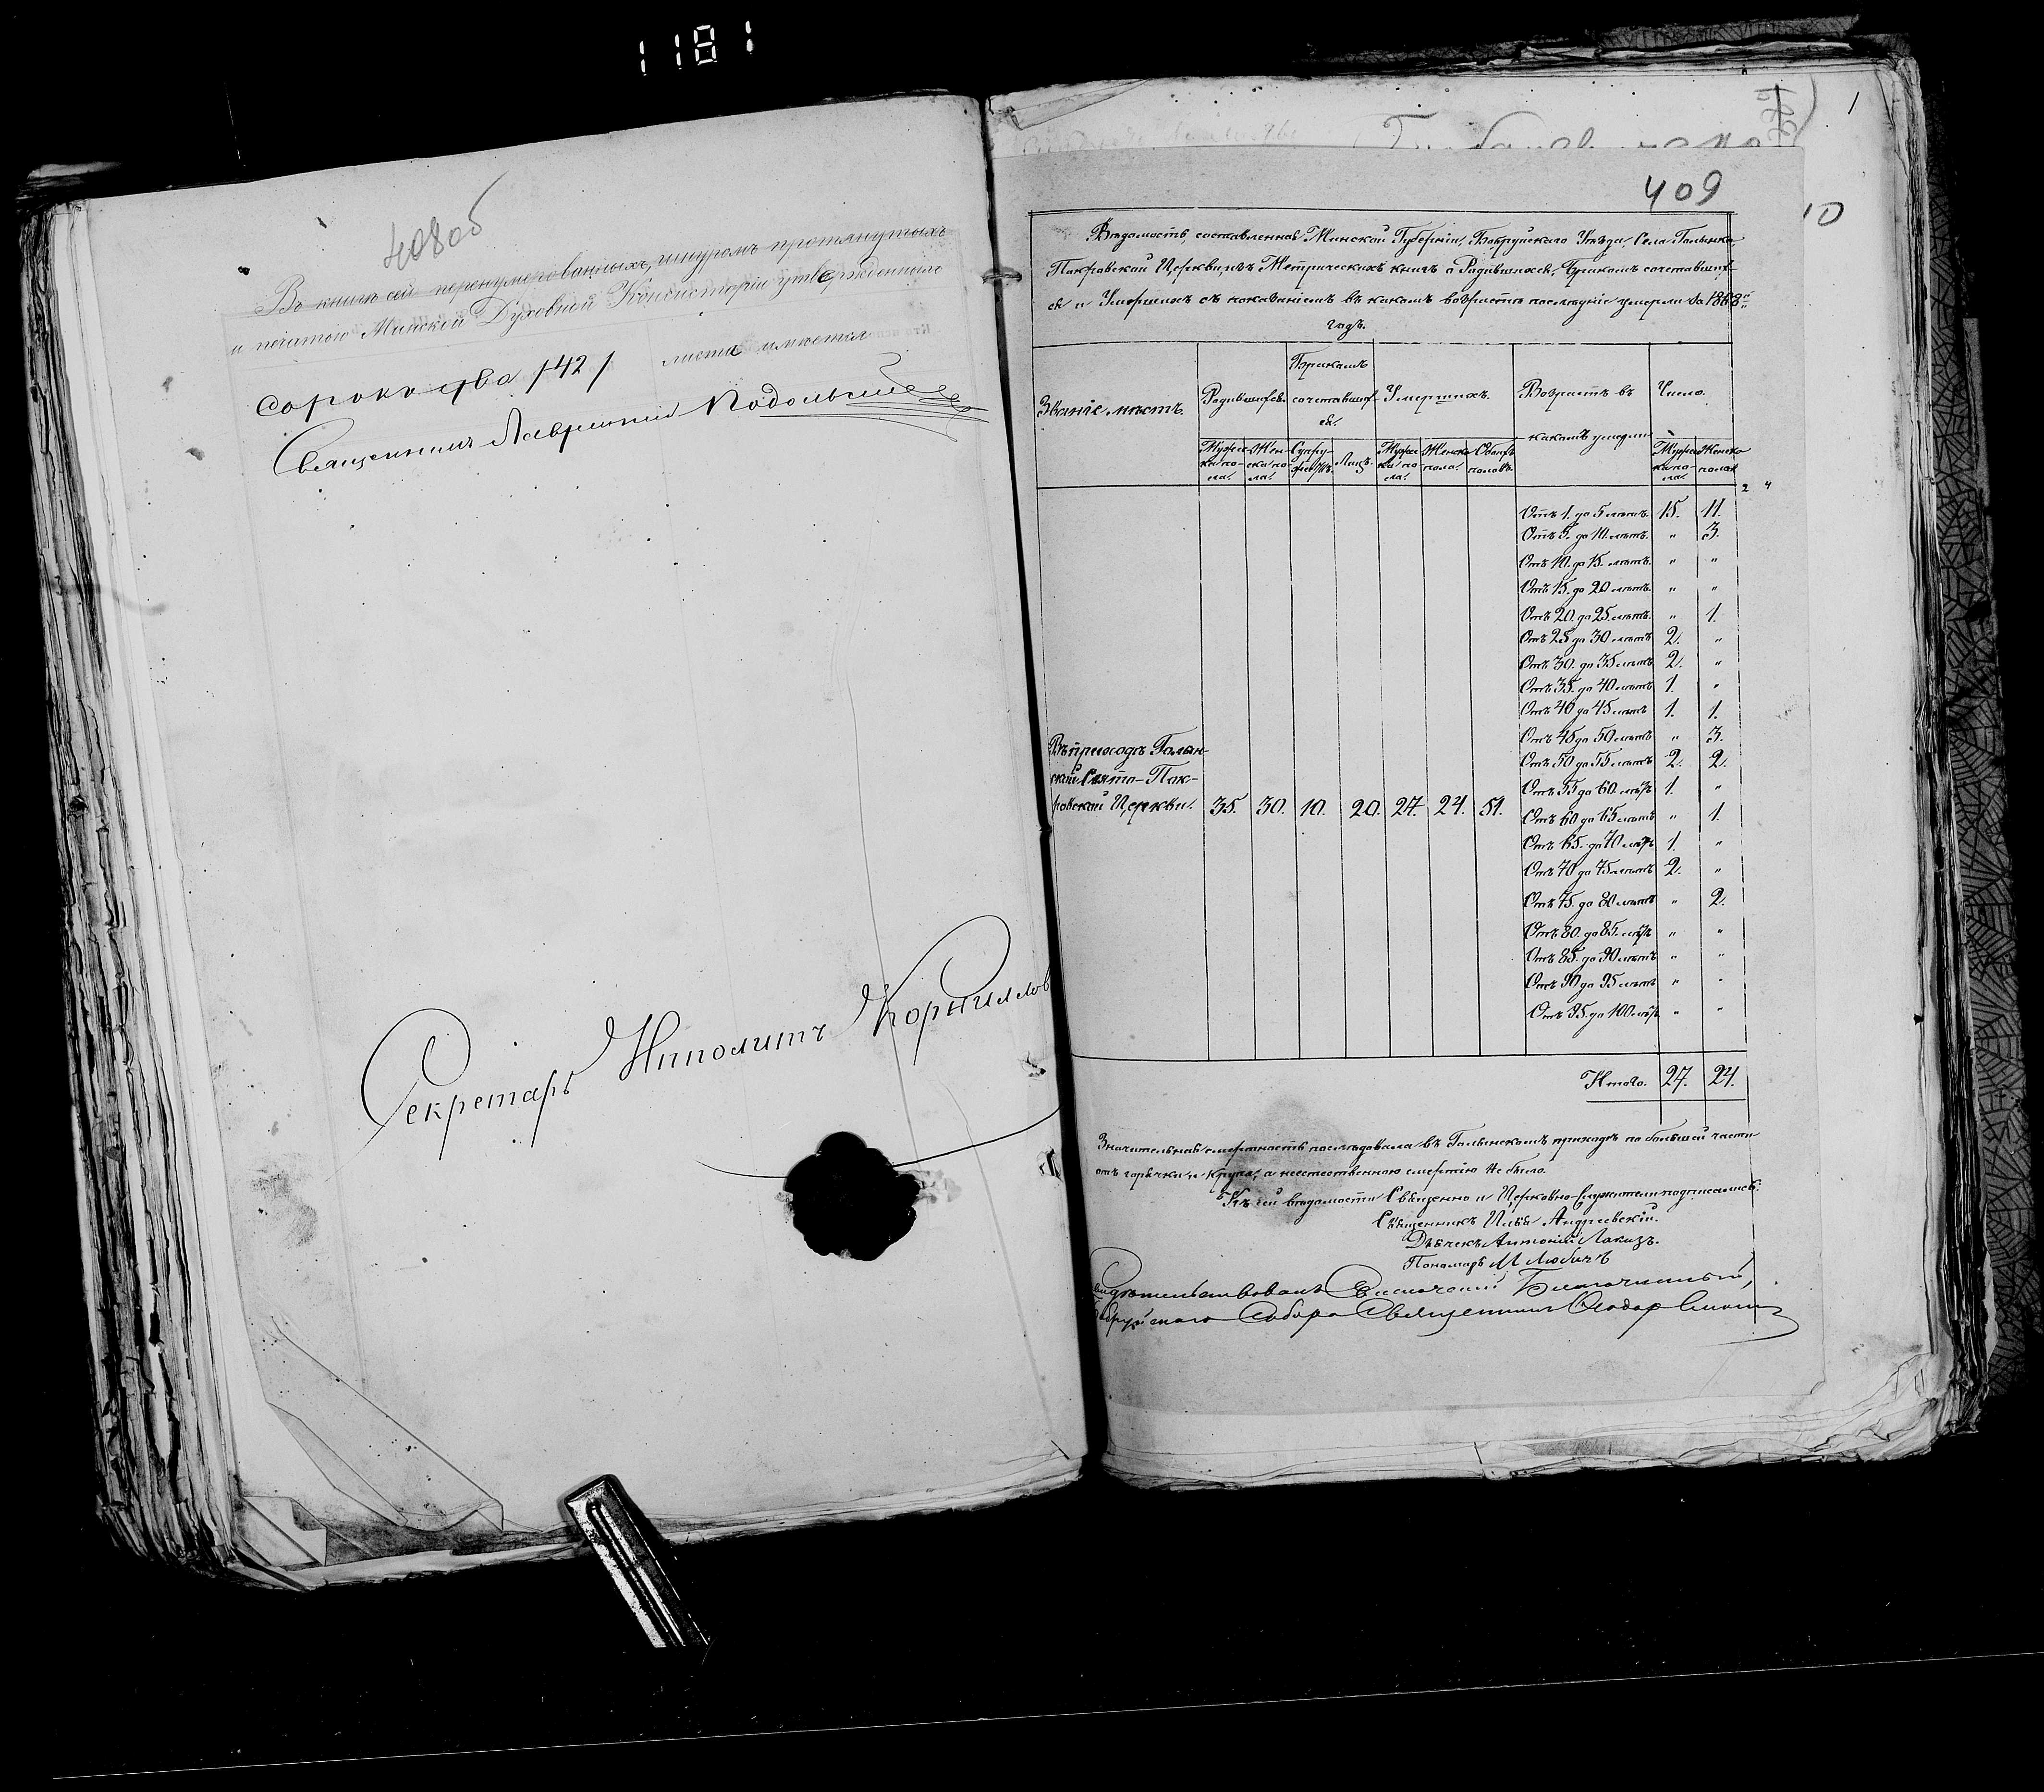 1181
408об
Въ книгѣ сей перенумерованныхъ, шнуромъ протянутыхъ
и печатью Минской Духовной Консисторіи утвержденныхъ
сорокъ два /42/ листа имѣется
Священникъ Лаврентій Подольскій
Секретарь Ипполитъ Корниллов
1
10
409
Вѣдомость, составленная Минской Губерніи, Бобруйскаго Уѣзда, Села Голынка
Покровской Церкви, изъ Метрическихъ книгъ о Родившихся, Бракомъ сочетавших-
ся и Умершихъ съ показаніемъ въ какомъ возрастѣ послѣдніе умерли за 1868й
годъ.
Званіе мѣстъ. Родившихся. Бракомъ сочетавших-ся. Умершихъ. Возрастъ въ какомъ умерли Число.
Мужес-ка по-ла. Жен-ска по-ла. Супру-жествъ. Лицъ. Мужес-ка по-ла. Женска пола. Обоихъ половъ. Мужес-ка по-ла. Женска пола.
Отъ 1. до 5 лѣтъ. 15. 11.
Отъ 5. до 10. лѣтъ. " 3.
Отъ 10. до 15. лѣтъ. " "
Отъ 15. до 20 лѣтъ. " "
Отъ 20. до 25. лѣтъ. " 1.
Отъ 25 до 30 лѣтъ 2. "
Отъ 30. до 35 лѣтъ 2. "
Отъ 35. до 40 лѣтъ 1. "
Отъ 40 до 45 лѣтъ 1. 1.
Отъ 45 до 50 лѣтъ " 3.
Отъ 50 до 55 лѣтъ 2. 2.
Отъ 55 до 60. лѣтъ 1. "
Въ приходѣ Голын-
ской Свято-Пок-
ровской Церкви. 35. 30. 10. 20. 27. 24. 51.
Отъ 60 до 65 лѣтъ " 1.
Отъ 65. до 70 лѣтъ 1. "
Отъ 70 до 75 лѣтъ 2. "
Отъ 75. до 80 лѣтъ " 2.
Отъ 80. до 85. лѣтъ " "
Отъ 85. до 90 лѣтъ " "
Отъ 90 до 95 лѣтъ " "
Отъ 95. до 100. лѣтъ " "
Итого. 27. 24.
Значительная смертность послѣдовала въ Голынскомъ приходѣ по большей части
отъ горячки и крупа, а неестественною смертію не было.
Къ сей вѣдомости Священно и Церковно-Служители подписались:
Священникъ Илья Андреевскій.
Дьячекъ Антоній Лакизъ.
Пономарь М Любичъ
Свидѣтельствовалъ Благочинный,
Бобруйскаго Собора Священникъ Ѳеодоръ